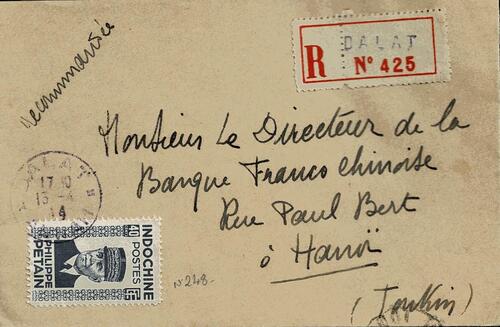 Recommandée
R DALAT
Nº 425
Monsieur Le Directeur de la
Banque Franco Chinoise
Rue Paul Bert
à Hanoï
(Tonkin)
DALAT
17 10
13 -4
INDOCHINE
POSTES
PHILIPPE
PETAIN
Nº248-